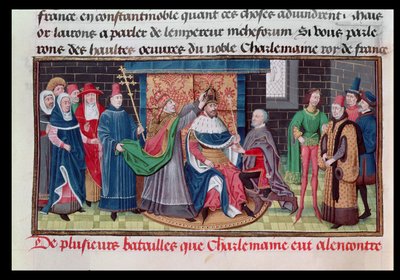 france en constantnoble quant ces choses aduindrent. Mais
or lairons a parler de lempereur micheforum. Si vous parle
rons des haultes oeuures du noble Charlemaine roy de france
De plusieurs batailles que Charlemaine eut alencontre